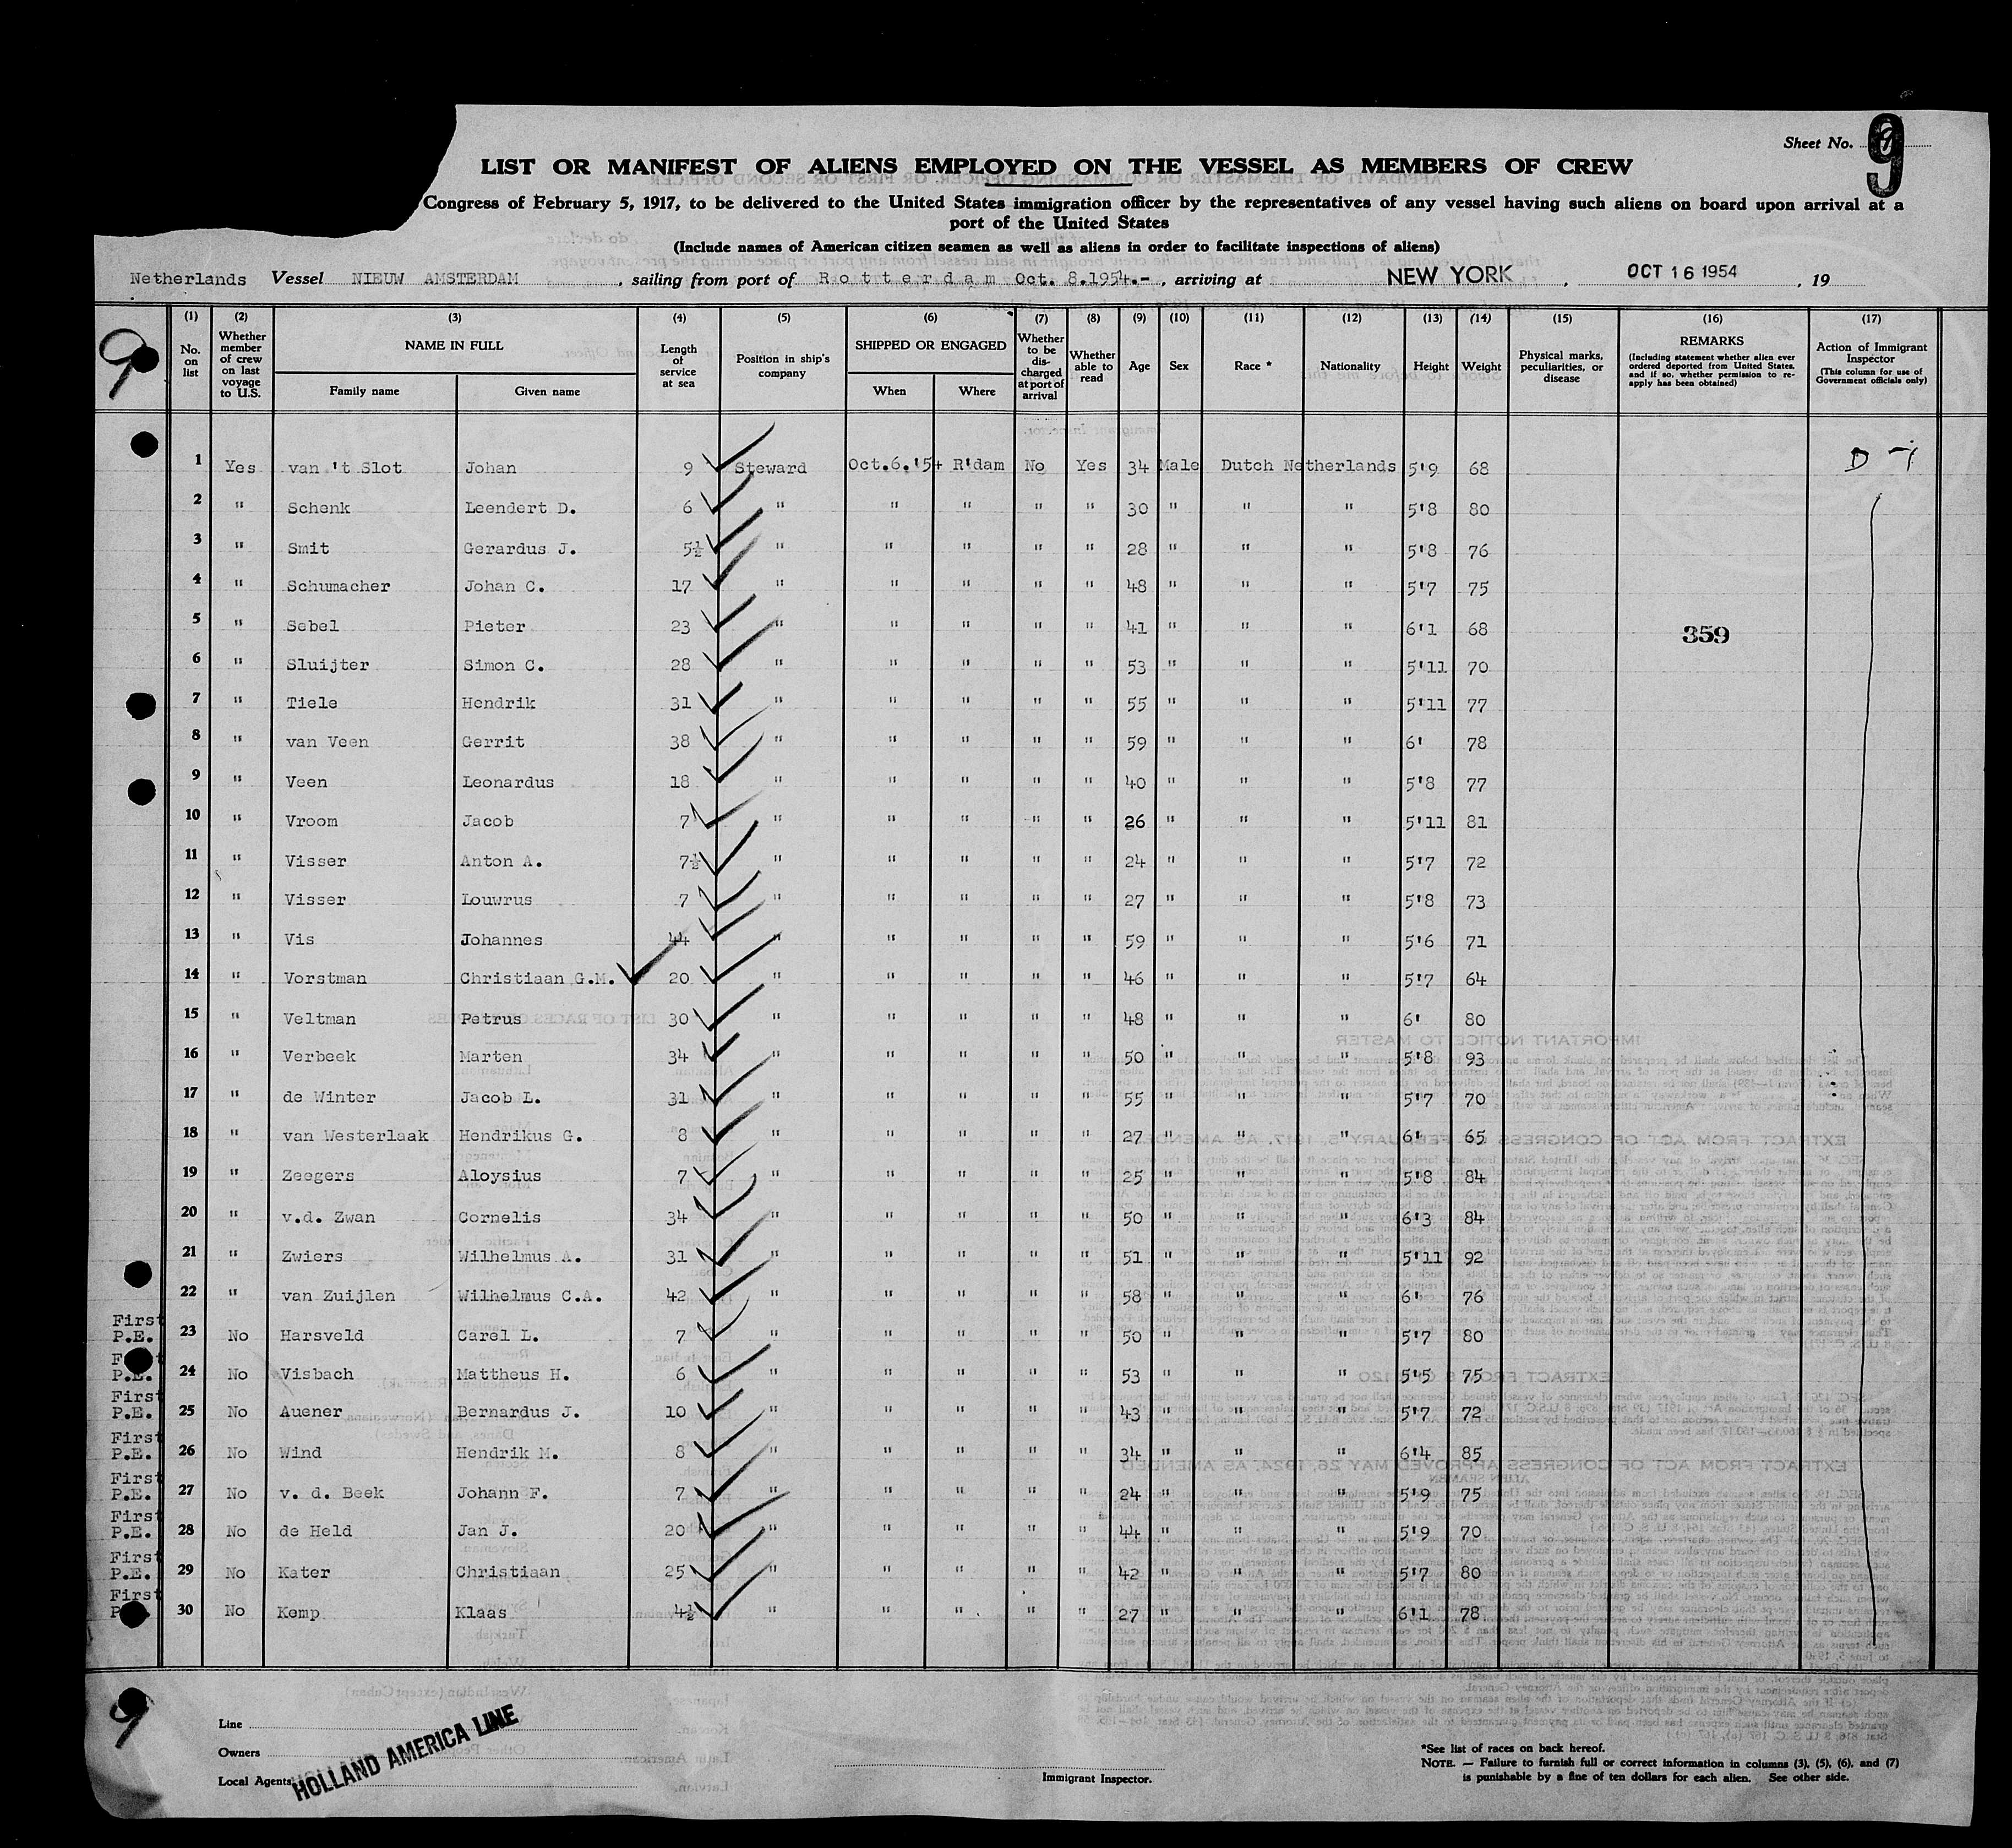 Sheet No. 9
LIST OR MANIFEST OF ALIENS EMPLOYED ON THE VESSEL AS MEMBERS OF CREW
Congress of February 5, 1917, to be delivered to the United States immigration officer by the representatives of any vessel having such aliens on board upon arrival at a
port of the United States
(Include names of American citizen seamen as well as aliens in order to facilitate inspections of aliens)
Netherlands Vessel NIEUW AMSTERDAM, sailing from port of Rotterdam Oct. 8.1954.-, arriving at NEW YORK, OCT 16 1954, 19
9
(1) No. on list (2) Whether member of crew on last voyage to U.S. (3) NAME IN FULL Family name Given name (4) Length of service at sea (5) Position in ship's company (6) SHIPPED OR ENGAGED When Where (7) Whether to be discharged at port of arrival (8) Whether able to read (9) Age (10) Sex (11) Race * (12) Nationality (13) Height (14) Weight (15) Physical marks, peculiarities, or disease (16) REMARKS (Including statement whether alien ever ordered deported from United States, and if so, whether permission to re-apply has been obtained) (17) Action of Immigrant Inspector (This column for use of Government officials only)
1 Yes van 't Slot Johan 9 Steward Oct.6.'54 R'dam No Yes 34 Male Dutch Netherlands 5'9 68 D-1
2 " Schenk Leendert D. 6 " " " " " 30 " " " 5'8 80
3 " Smit Gerardus J. 5½ " " " " " 28 " " " 5'8 76
4 " Schumacher Johan C. 17 " " " " " 48 " " " 5'7 75
5 " Sebel Pieter 23 " " " " " 41 " " " 6'1 68 359
6 " Sluijter Simon C. 28 " " " " " 53 " " " 5'11 70
7 " Tiele Hendrik 31 " " " " " 55 " " " 5'11 77
8 " van Veen Gerrit 38 " " " " " 59 " " " 6' 78
9 " Veen Leonardus 18 " " " " " 40 " " " 5'8 77
10 " Vroom Jacob 7 " " " " " 26 " " " 5'11 81
11 " Visser Anton A. 7½ " " " " " 24 " " " 5'7 72
12 " Visser Louwrus 7 " " " " " 27 " " " 5'8 73
13 " Vis Johannes 44 " " " " " 59 " " " 5'6 71
14 " Vorstman Christiaan G.M. 20 " " " " " 46 " " " 5'7 64
15 " Veltman Petrus 30 " " " " " 48 " " " 6' 80
16 " Verbeek Marten 34 " " " " " 50 " " " 5'8 93
17 " de Winter Jacob L. 31 " " " " " 55 " " " 5'7 70
18 " van Westerlaak Hendrikus G. 8 " " " " " 27 " " " 6' 65
19 " Zeegers Aloysius 7 " " " " " 25 " " " 5'8 84
20 " v.d. Zwan Cornelis 34 " " " " " 50 " " " 6'3 84
21 " Zwiers Wilhelmus A. 31 " " " " " 51 " " " 5'11 92
22 " van Zuijlen Wilhelmus C.A. 42 " " " " " 58 " " " 6' 76
First P.E. 23 No Harsveld Carel L. 7 " " " " " 50 " " " 5'7 80
First P.E. 24 No Visbach Mattheus H. 6 " " " " " 53 " " " 5'5 75
First P.E. 25 No Auener Bernardus J. 10 " " " " " 43 " " " 5'7 72
First P.E. 26 No Wind Hendrik M. 8 " " " " " 34 " " " 6'4 85
First P.E. 27 No v. d. Beek Johann F. 7 " " " " " 24 " " " 5'9 75
First P.E. 28 No de Held Jan J. 20 " " " " " 44 " " " 5'9 70
First P.E. 29 No Kater Christiaan 25 " " " " " 42 " " " 5'7 80
First P. 30 No Kemp Klaas 4½ " " " " " 27 " " " 6'1 78
9
Line
Owners
Local Agents
HOLLAND AMERICA LINE
Immigrant Inspector.
*See list of races on back hereof.
NOTE. — Failure to furnish full or correct information in columns (3), (5), (6), and (7)
is punishable by a fine of ten dollars for each alien. See other side.